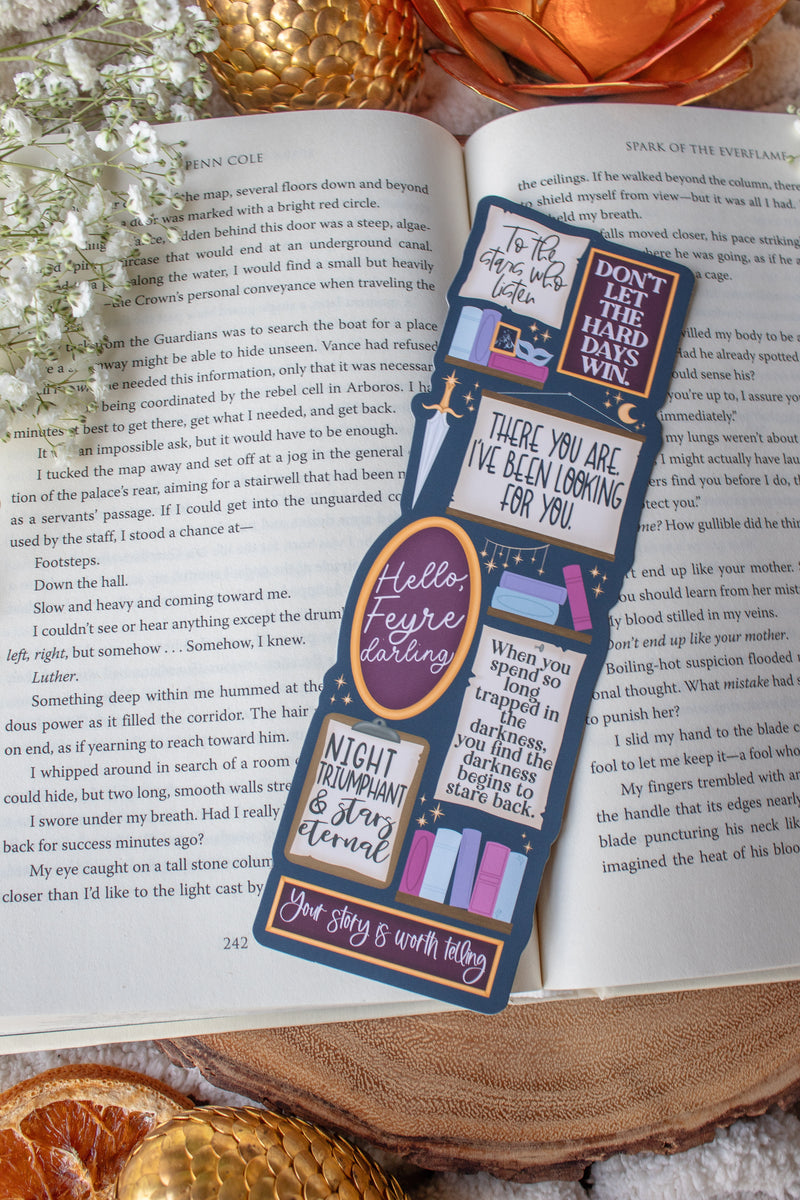 PENN COLE
the map, several floors down and beyond
door was marked with a bright red circle.
hidden behind this door was a steep, algae-
staircase that would end at an underground canal.
along the water, I would find a small but heavily
—the Crown's personal conveyance when traveling the
from the Guardians was to search the boat for a place
way might be able to hide unseen. Vance had refused
needed this information, only that it was necessar
being coordinated by the rebel cell in Arboros. I h
minutes at best to get there, get what I needed, and get back.
It an impossible ask, but it would have to be enough.
I tucked the map away and set off at a jog in the general
tion of the palace's rear, aiming for a stairwell that had been
as a servants' passage. If I could get into the unguarded co
used by the staff, I stood a chance at—
Footsteps.
Down the hall.
Slow and heavy and coming toward me.
I couldn't see or hear anything except the drum
left, right, but somehow . . . Somehow, I knew.
Luther.
Something deep within me hummed at the
dous power as it filled the corridor. The hair
on end, as if yearning to reach toward him.
I whipped around in search of a room
could hide, but two long, smooth walls stre
I swore under my breath. Had I really
back for success minutes ago?
My eye caught on a tall stone colum
closer than I'd like to the light cast by
242
To the
stars who
listen
DON'T
LET
THE
HARD
DAYS
WIN.
THERE YOU ARE
I'VE BEEN LOOKING
FOR YOU.
Hello,
Feyre
darling
When you
spend so
long
trapped in
the
darkness,
you find the
darkness
begins to
stare back.
NIGHT
TRIUMPHANT
& stars
eternal
Your story is worth telling
SPARK OF THE EVERFLAME
the ceilings. If he walked beyond the column, there
to shield myself from view—but it was all I had.
held my breath.
falls moved closer, his pace striking
here he was going, as if he
a cage.
willed my body to be a
Had he already spotted
ould sense his?
you're up to, I assure yo
immediately."
my lungs weren't about
I might actually have lau
ers find you before I do, th
otect you."
me? How gullible did he thin
't end up like your mother.
ou should learn from her mist
My blood stilled in my veins.
Don't end up like your mother.
Boiling-hot suspicion flooded
onal thought. What mistake had
to punish her?
I slid my hand to the blade
fool to let me keep it—a fool who
My fingers trembled with an
the handle that its edges nearly
blade puncturing his neck lik
imagined the heat of his bloo